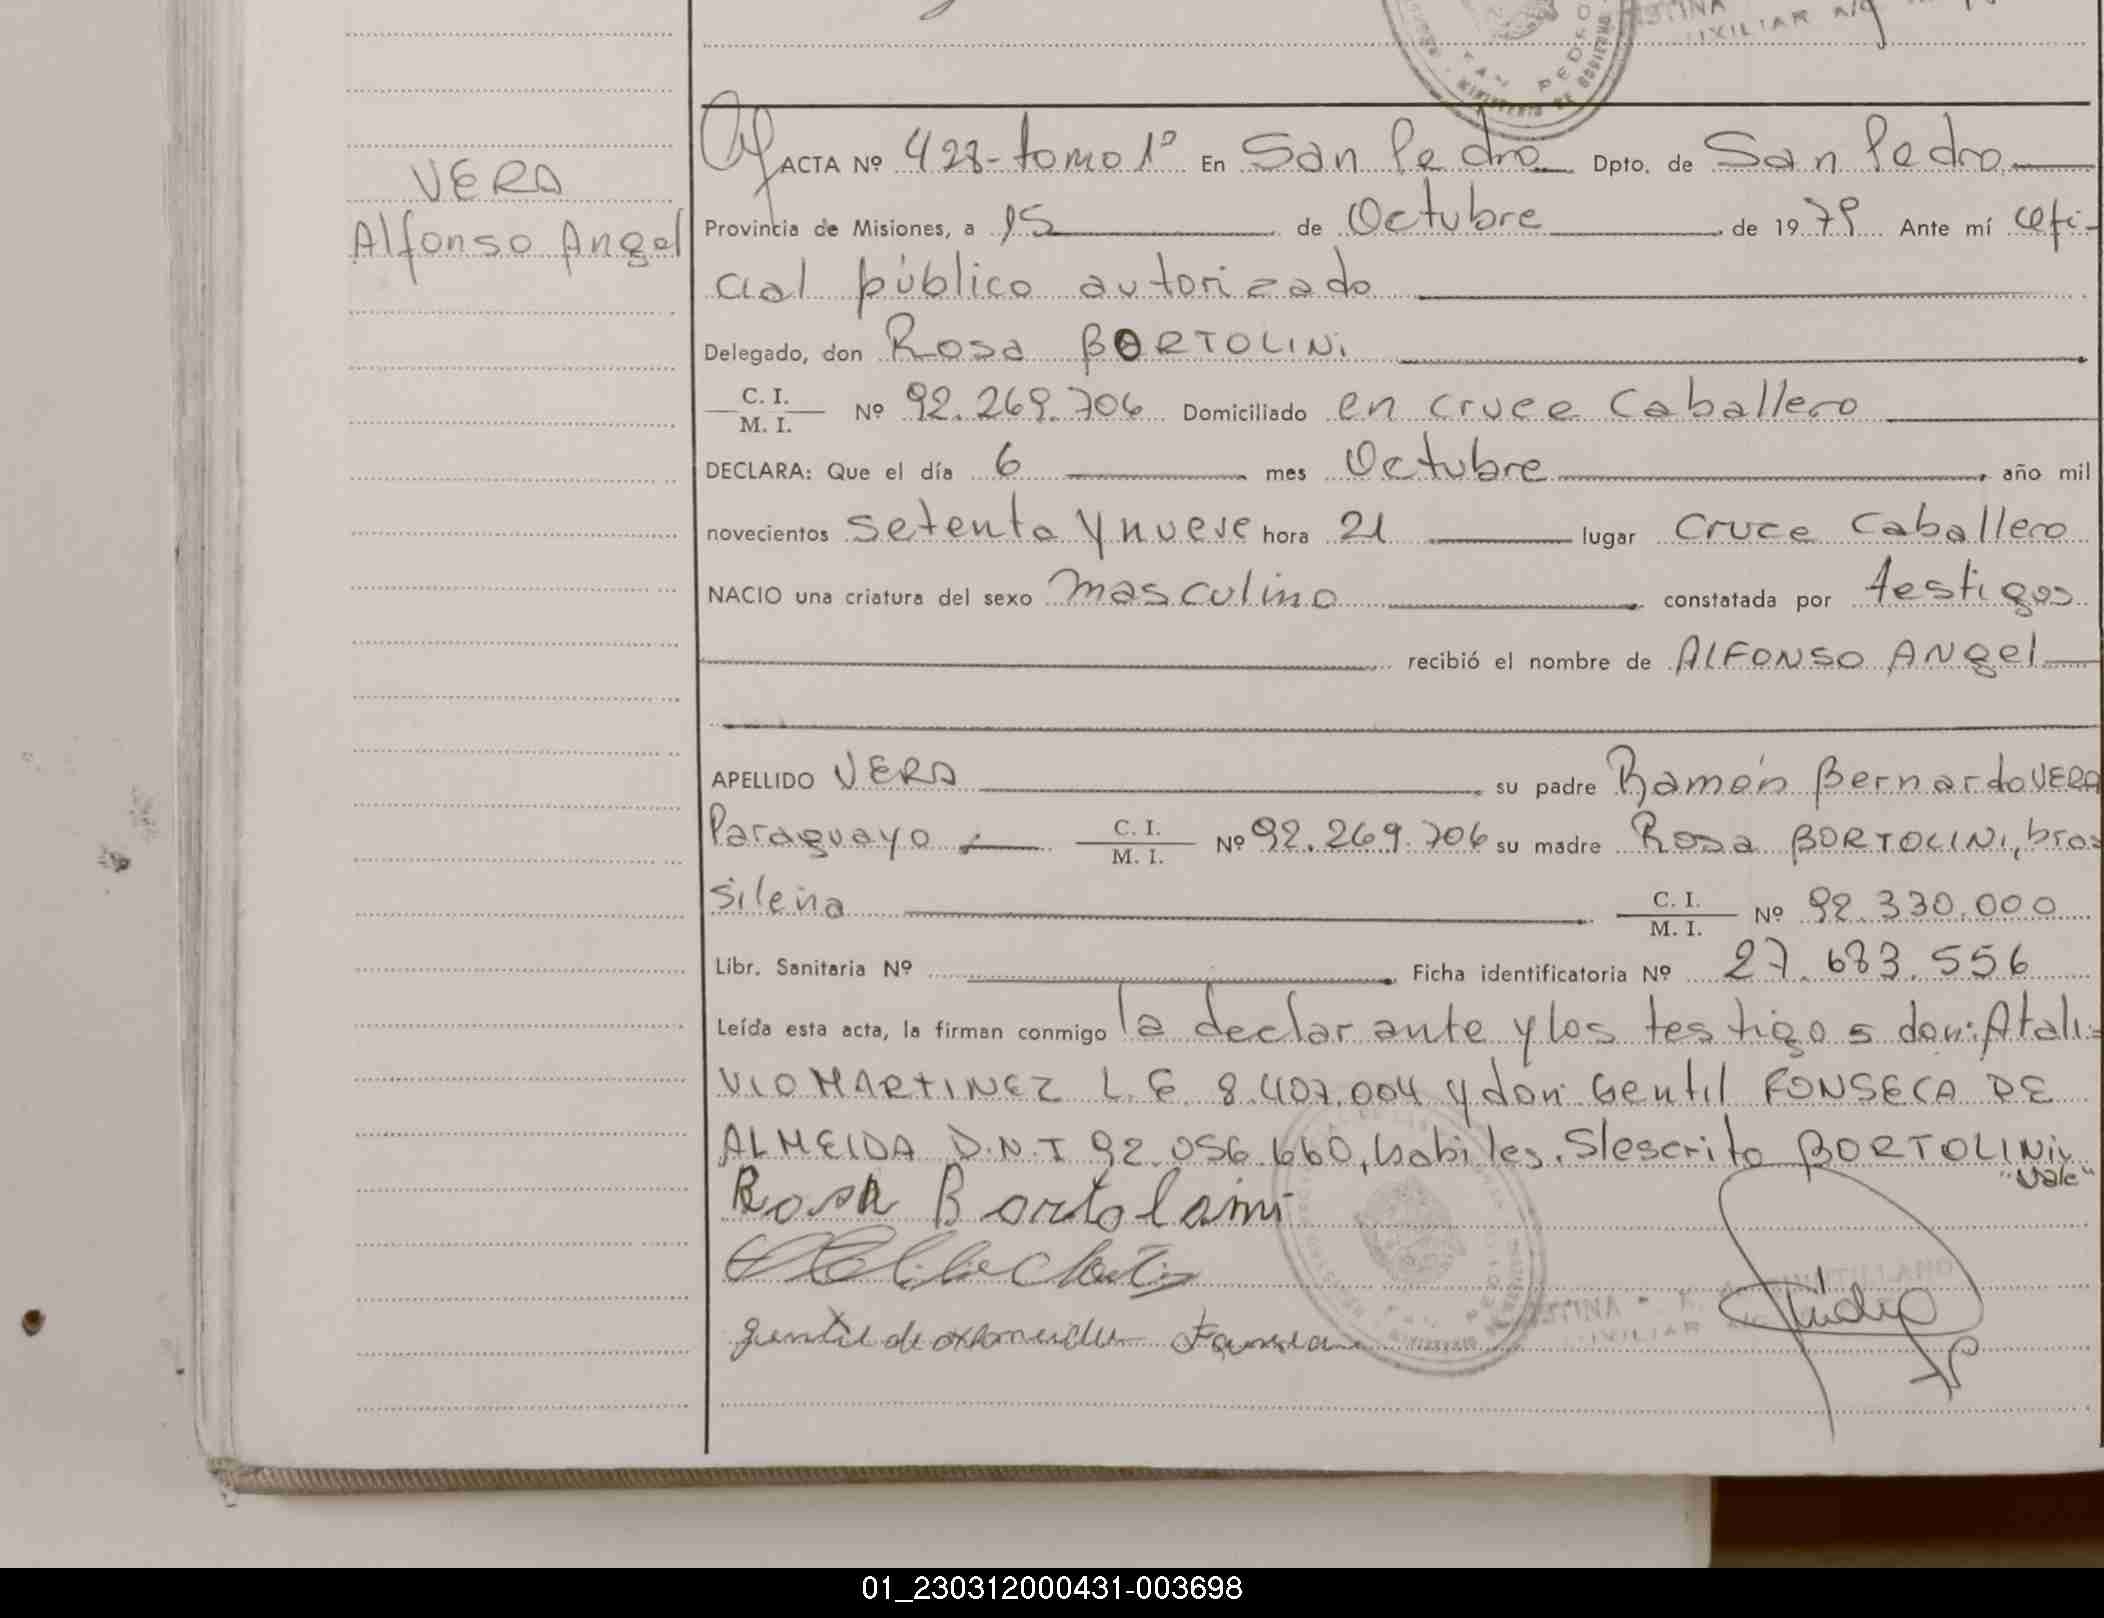 VERA
Alfonso Angel
ACTA Nº 428-tomo 1º En San Pedro Dpto. de San Pedro
Provincia de Misiones, a 15 de Octubre de 1979 Ante mí ofi-
cial público autorizado
Delegado, don Rosa BORTOLINI
C. I.
M. I. Nº 92.269.706 Domiciliado en cruce Caballero
DECLARA: Que el día 6 mes Octubre año mil
novecientos setenta y nueve hora 21 lugar Cruce Caballero
NACIO una criatura del sexo masculino constatada por testigos
recibió el nombre de ALFONSO ANgel
APELLIDO VERA su padre Ramón Bernardo VERA
Paraguayo C. I. M. I. Nº 92.269.706 su madre Rosa BORTOLINI, bra
sileña C. I. M. I. Nº 92.330.000
Libr. Sanitaria Nº Ficha identificatoria Nº 27.683.556
Leída esta acta, la firman conmigo la declarante y los testigos don: Atali-
VIO MARTINEZ L.E. 8.407.004 y don Gentil FONSECA DE
ALMEIDA D.N.I 92.056.660, habiles. S/escrito BORTOLINI,
"Vale"
Rosa Bortolami
01_230312000431-003698